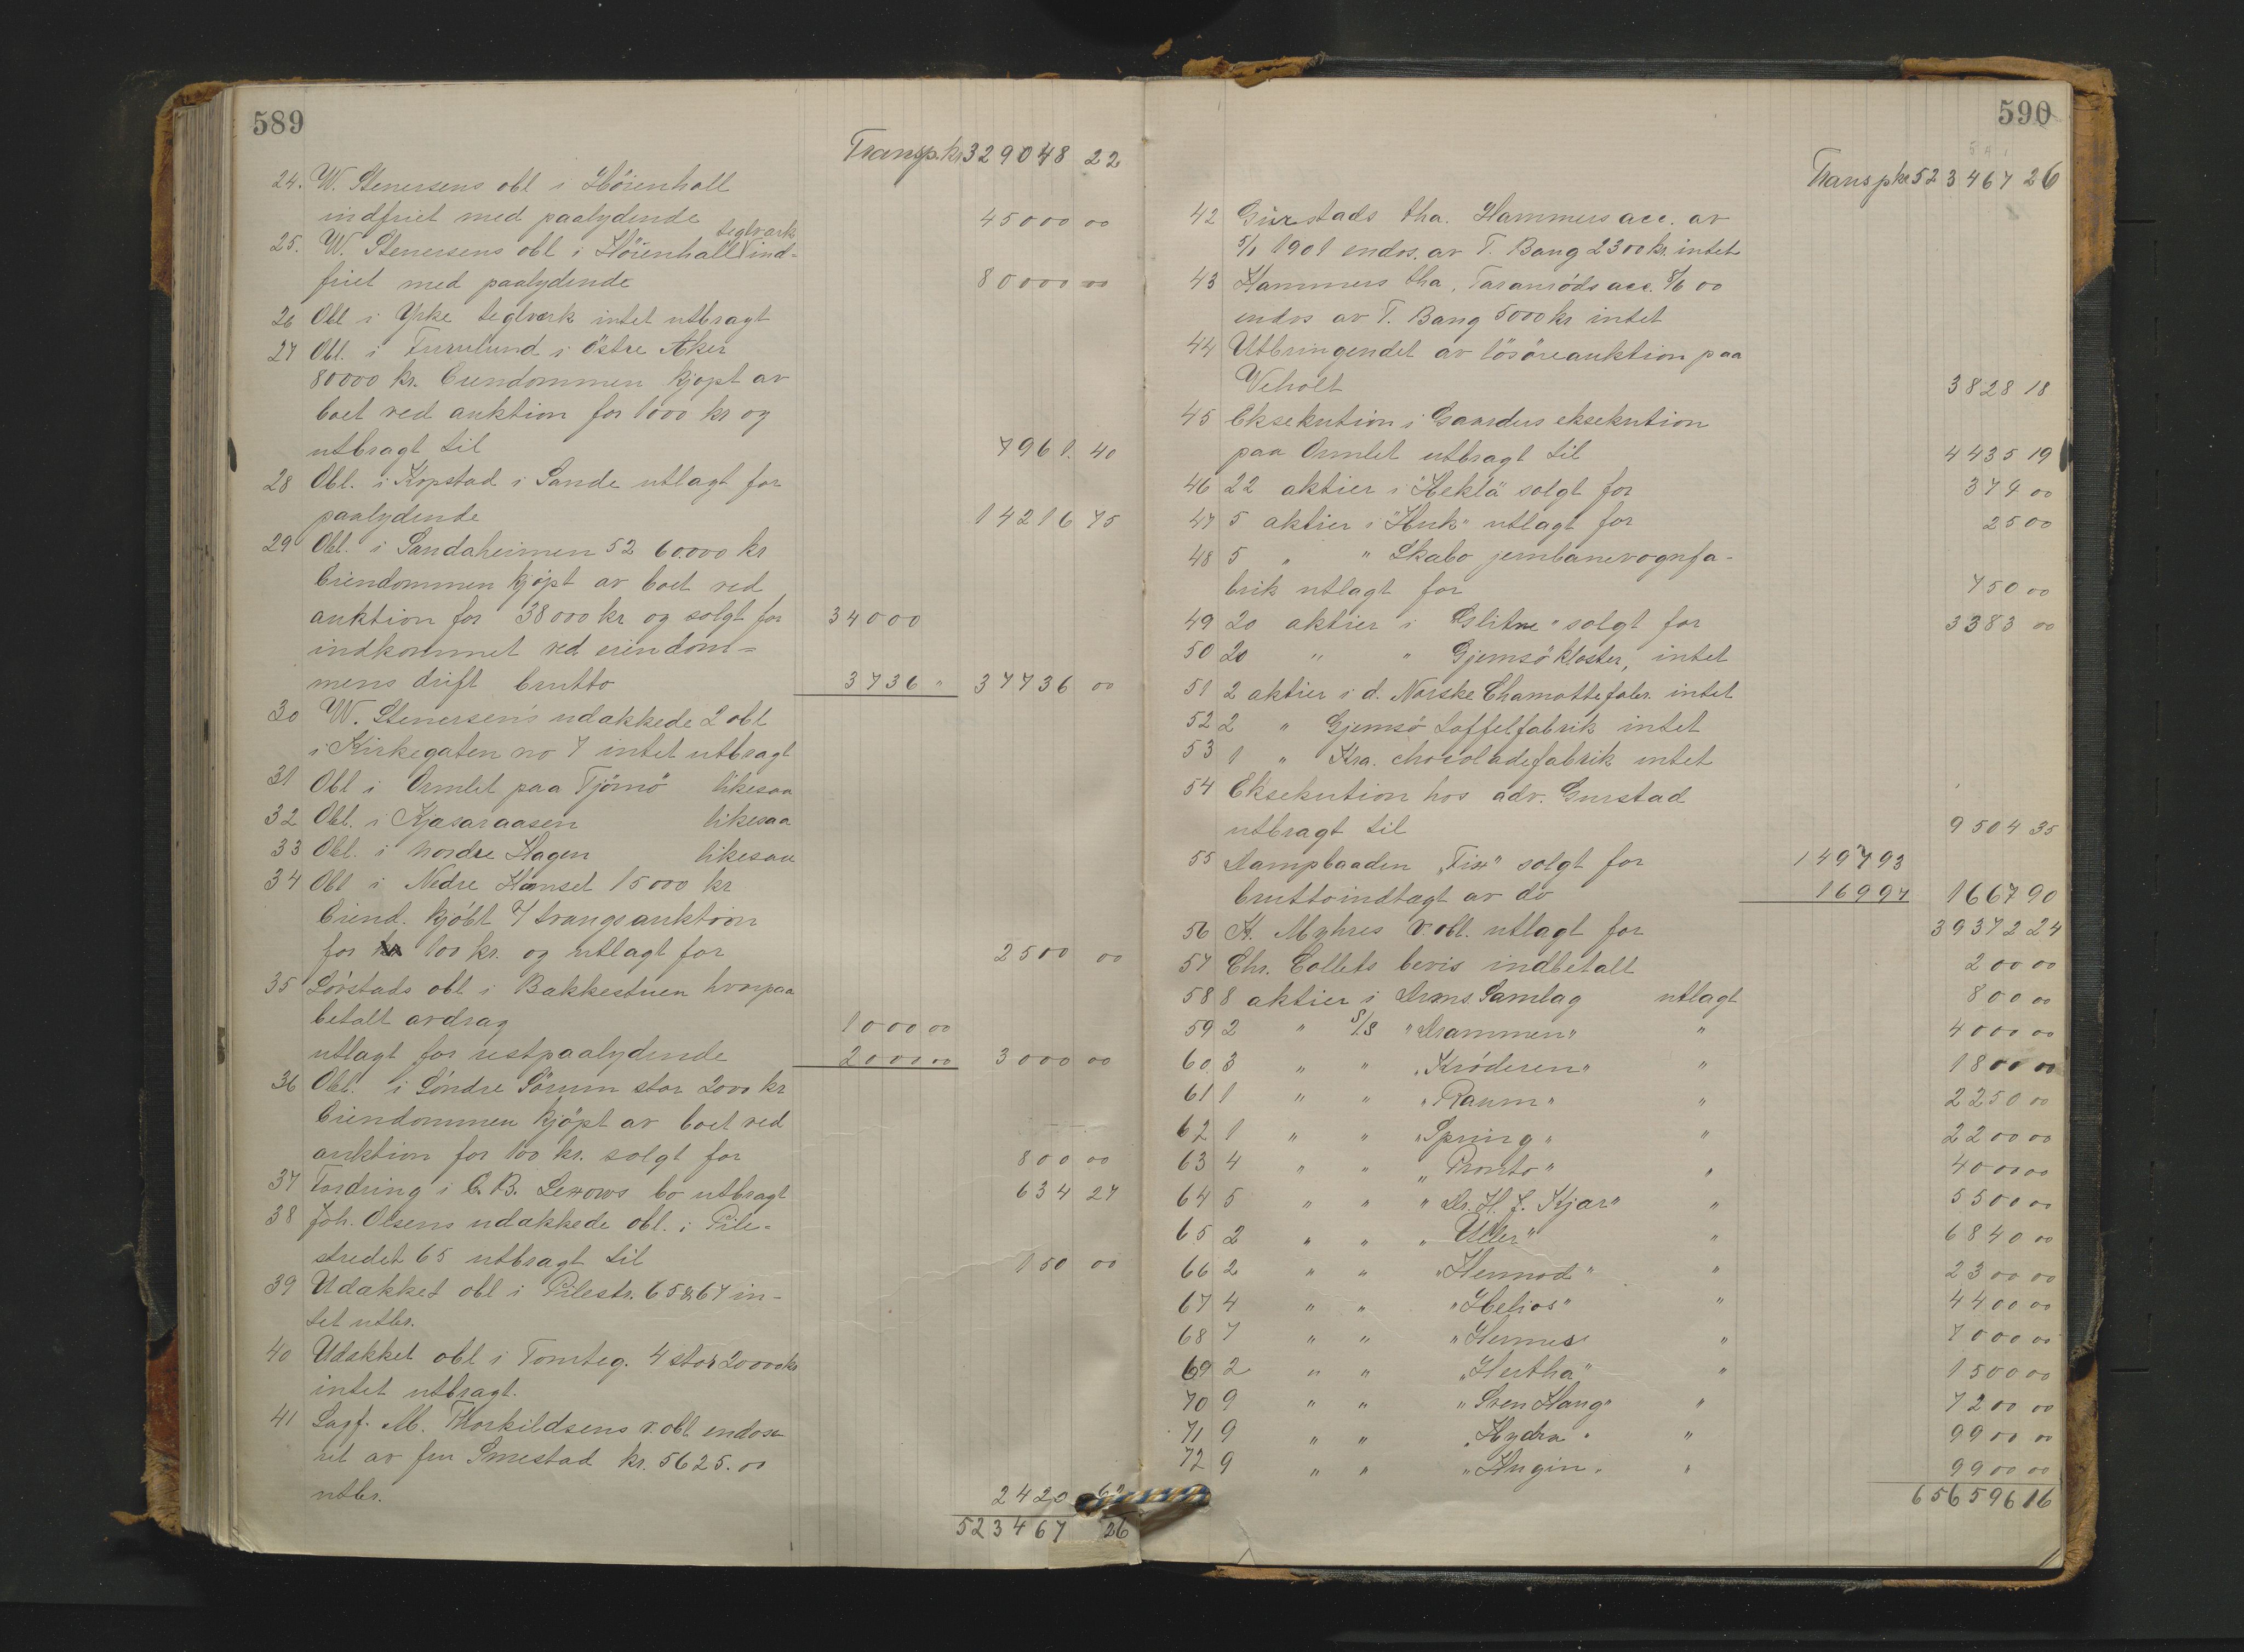 589
Transp. kr 329048 22
24. W. Stenersens obl i Höienhall
indfriet med paalydende 45000 00
25. W. Stenersens obl i Höienhall teglværk ind-
friet med paalydende 80000 00
26 Obl i Ypke teglværk intet utbragt
27 Obl. i Furulund i Östre Aker
80000 kr. Eiendommen kjøpt av
boet ved auktion for 1000 kr og
utbragt til 7961. 40
28 Obl. i Kopstad i Sande utlagt for
paalydende 14216 75
29 Obl. i Sandaheimen 52 60.000 kr
Eiendommen kjöpt av boet ved
auktion for 38000 kr og solgt for 34000
indkommet ved eiendom=
mens drift brutto 3736 " 37736 00
30 W. Stenersen's udækkede 2 obl
i Kirkegaten no 7 intet utbragt
31 Obl i Ormlet paa Tjömö likesaa
32 Obl. i Kjasaraasen likesaa
33 Obl. i Nordre Hagen likesaa
34 Obl i Nedre Hönset 15000 kr
Eiend. kjöbt v/ tvangsauktion
for 100 kr. og utlagt for 2500 00
35 Lörstads obl i Bakkestuen hvorpaa
betalt avdrag 1000 00
utlagt for restpaalydende 2000 00 3000 00
36 Obl. i Söndre Sörum stor 2000 kr
Eiendommen kjöpt av boet ved
auktion for 100 kr. solgt for 800 00
37 Fordring i C. B. Lexows bo utbragt 634 27
38 Joh. Olsens udækkede obl. i Pile=
stredet 65 utbragt til 150 00
39 Udækket obl i Pilestr. 65&67 in-
tet utbr.
40 Udækket obl i Tomteg. 4 stor 20000 kr
intet utbragt.
41 Sagf. M. Thorkildsens v. obl endose
ret av fru Smestad kr. 5625.00
utbr. 2420 62
523467 26
590
Transp kr 523467 26
42 Gurstads tha. Hammers acc. av
5/1 1901 endos. av T. Bang 2300 kr. intet
43 Hammers tha. Taranröds acc. 8/6 00
endos av T. Bang 5000 kr intet
44 Utbringendet av lösöreauktion paa
Veholt 3828 18
45 Eksekution i Gaarders eksekution
paa Ormlet utbragt til 4435 19
46 22 aktier i "Hekla" solgt for 374 00
47 5 aktier i "Huk" utlagt for 25 00
48 5 " " Skabo jernbanevognfa-
brik utlagt for 750 00
49 20 aktier i Glitne" solgt for 3383 00
50 20 " " Gjemsö kloster, intet
51 2 aktier i d. Norske Chamottefabr. intet
52 2 " Gjemsö Löffelfabrik intet
53 1 " Kra. chocoladefabrik intet
54 Eksekution hos adv. Gurstad
utbragt til 9504 35
55 Dampbaaden "Fix" solgt for 1497 93
bruttoindtægt av do 169 97 1667 90
56 H. Myhres v. obl. utlagt for 39372 24
57 Chr. Collets bevis indbetalt 200 00
58 8 aktier i Drms. Samlag utlagt 800 00
59 2 " S/S "Drammen" " 4000 00
60. 3 " " "Kröderen" " 1800 00
61 1 " " "Raum" " 2250 00
62 1 " " "Spring" " 2200 00
63 4 " " "Pronto" " 4000 00
64 5 " " "Dr. H. J. Kjær" " 5500 00
65 2 " " "Uller" " 6840 00
66 2 " " "Hermod" " 2300 00
67 4 " " "Helios" " 4400 00
68 7 " " "Hermes " 7000 00
69 2 " " "Hertha" " 1500 00
70 9 " " "Sven Haug" " 7200 00
71 9 " " "Hydra" " 9900 00
72 9 " " "Hugin" " 9900 00
656596 16